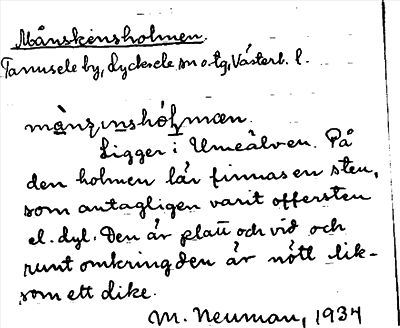 Månskensholmen.
Tannsele by, Lycksele sn o. tg, Västerb. l.
mån̥sin̥shól̥mæn.
Ligger i Umeälven. På
den holmen lär finnas en sten,
som antagligen varit offersten
el. dyl. Den är platt och vid och
runt omkring den är nött lik-
som ett dike.
M. Neuman, 1934